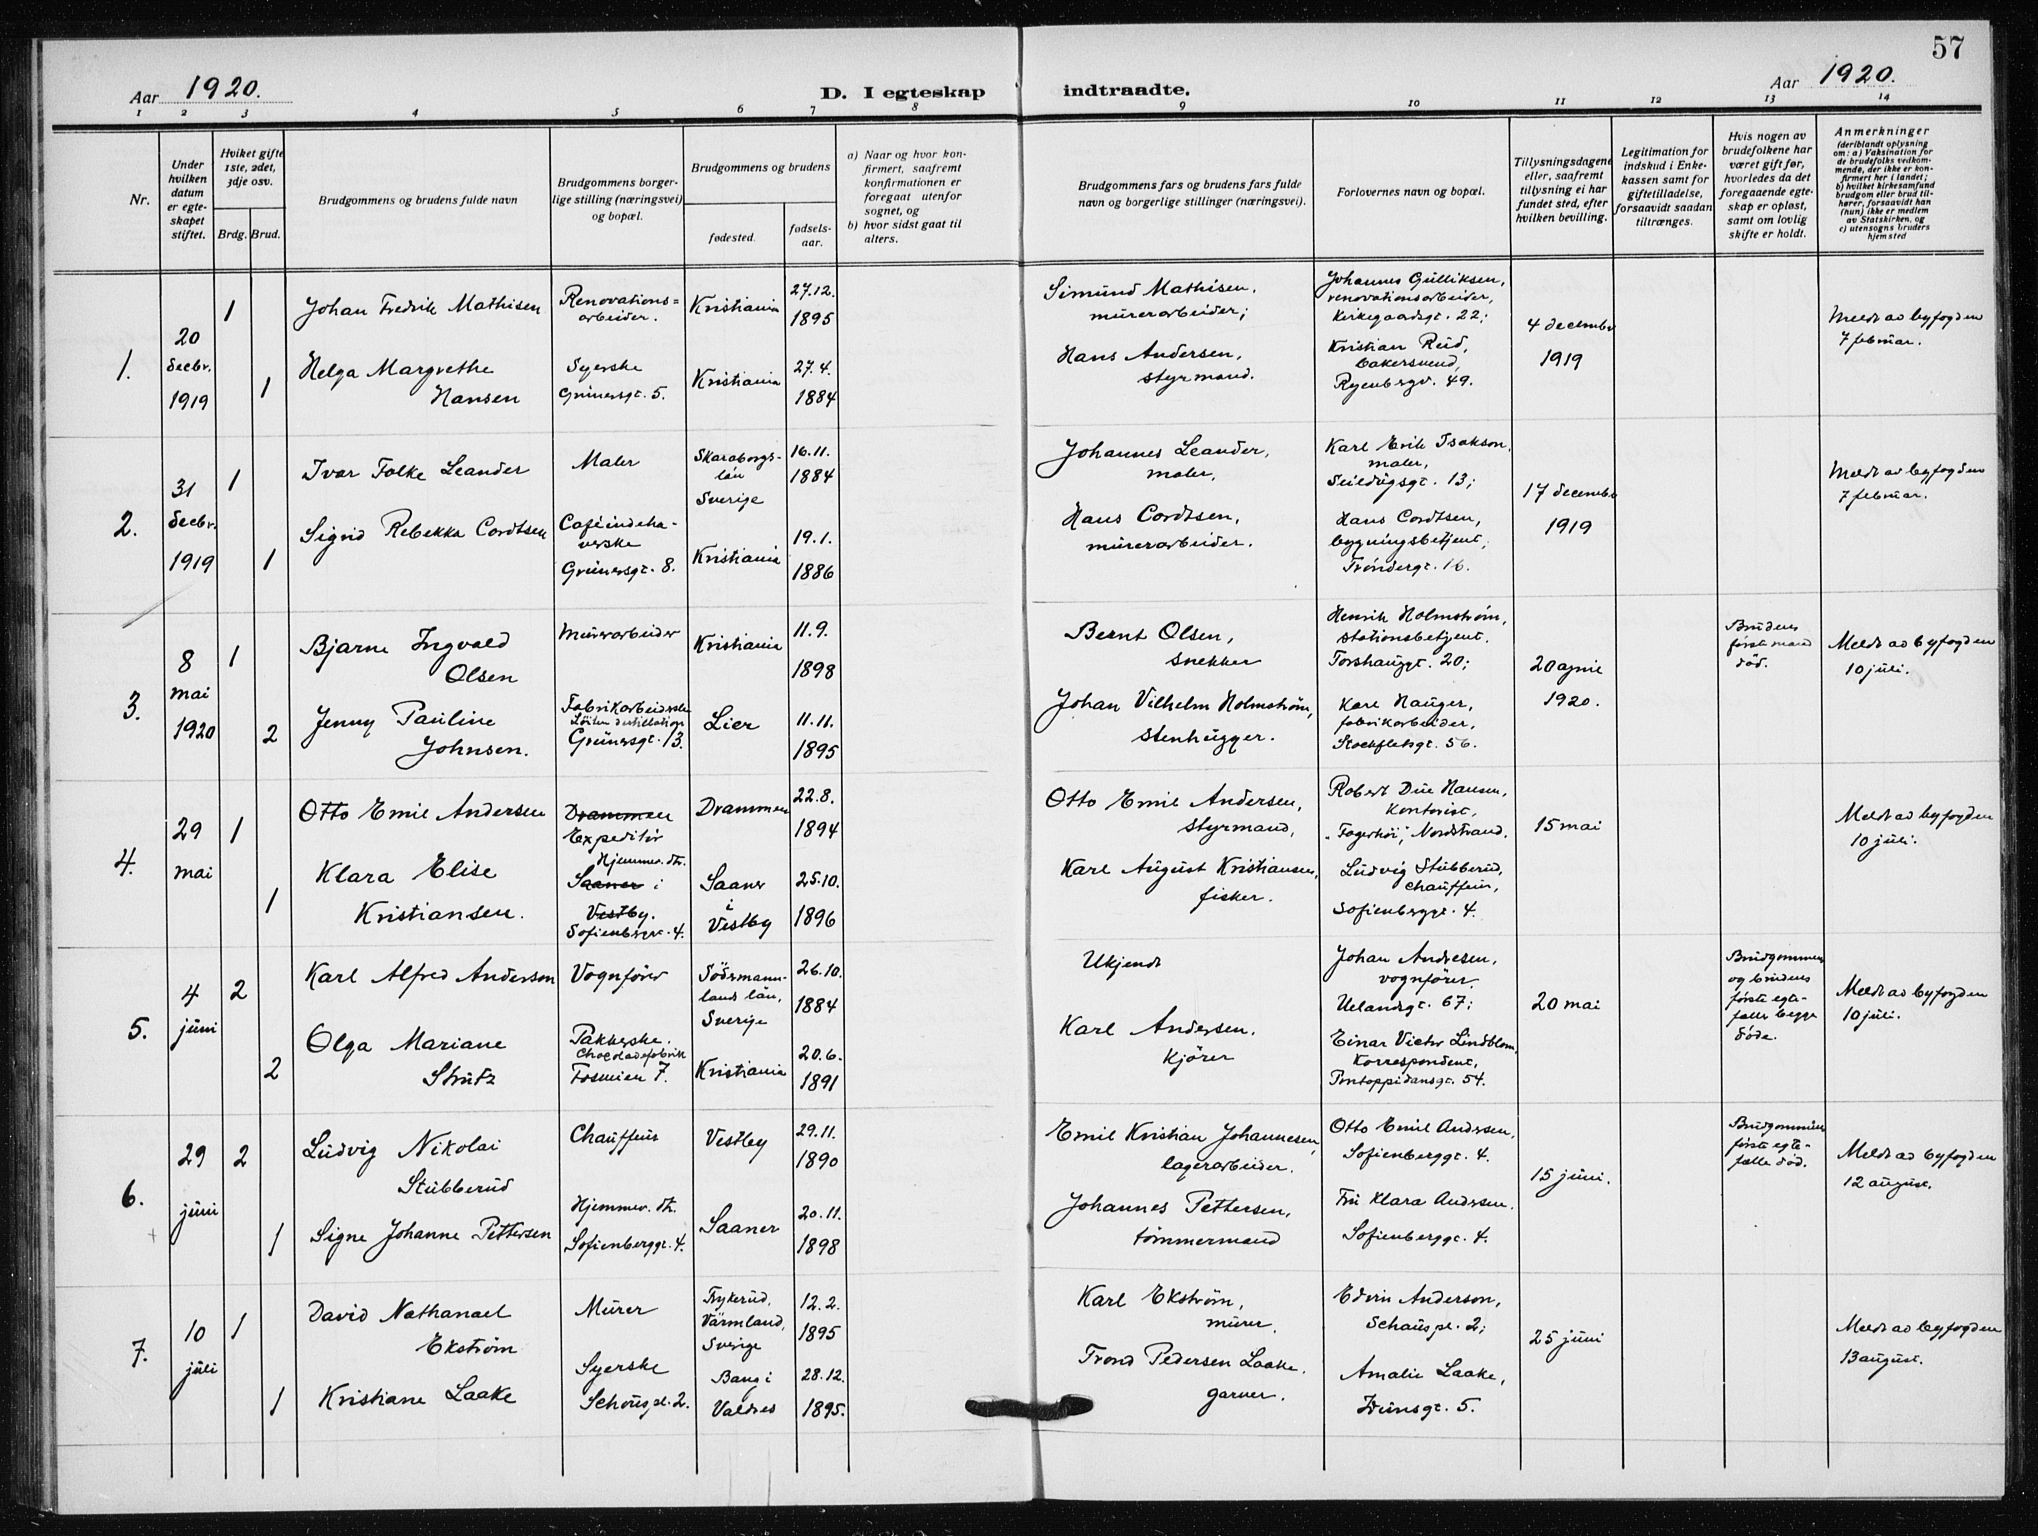 57
Aar 1920.
D. I egteskap indtraadte.
Aar 1920.
1 2 3 4 5 6 7 8 9 10 11 12 13 14
Nr.
Under hvilken datum er egteskapet stiftet.
Hviket gifte 1ste, 2det, 3dje osv.
Brdg. Brud.
Brudgommens og brudens fulde navn
Brudgommens borgerlige stilling (næringsvei) og bopæl.
Brudgommens og brudens
fødested.
fødselsaar.
a) Naar og hvor konfirmert, saafremt konfirmationen er foregaat utenfor sognet, og
b) hvor sidst gaat til alters.
Brudgommens fars og brudens fars fulde navn og borgerlige stillinger (næringsvei).
Forlovernes navn og bopæl.
Tillysningsdagene eller, saafremt tillysning ei har fundet sted, efter hvilken bevilling.
Legitimation for indskud i Enkekassen samt for giftetilladelse, forsaavidt saadan tiltrænges.
Hvis nogen av brudefolkene har været gift før, hvorledes da det foregaaende egteskap er opløst, samt om lovlig skifte er holdt.
Anmerkninger
(deriblandt oplysning om: a) Vaksination for de brudefolks vedkommende, der ikke er konfirmert her i landet; b) hvilket kirkesamfund brudgom eller brud tilhører, forsaavidt han (hun) ikke er medlem av Statskirken, og c) utensogns bruders hjemsted
1.
20 decbr. 1919
1
Johan Fredrik Mathisen
Renovationsarbeider.
Kristiania
27.12. 1895
Simund Mathisen, murerarbeider;
Johannes Gulliksen, renovationsarbeider, Kirkegaardsgt. 22;
4 decembr 1919
Meldt av byfogden 7 februar.
1
Helga Margrethe Hansen
Syerske Grünersgt. 5.
Kristiania
27.4. 1884
Hans Andersen, styrmand.
Kristian Reid, bakersvend, Ryenbergv. 49.
2.
31 decbr. 1919
1
Ivar Folke Leander
Maler
Skaraborgs län Sverige
16.11. 1884
Johannes Leander, maler,
Karl Erik Isakson, maler, Seildugsgt. 13;
17 decembr 1919
Meldt av byfogden 7 februar.
1
Sigrid Rebekka Cordtsen
Caféindehaverske Grünersgt. 8.
Kristiania
19.1. 1886
Hans Cordtsen, murerarbeider.
Hans Cordtsen, bygningsbetjent, Tröndergt. 16.
3.
8 mai 1920
1
Bjarne Ingvald Olsen
Murerarbeider
Kristiania
11.9. 1898
Bernt Olsen, snekker
Henrik Holmström, stationsbetjent, Torshauggt. 20;
20 april 1920.
Brudens første mand död.
Meldt av byfogden 10 juli.
2
Jenny Pauline Johnsen.
Fabrikarbeiderske Löiten destillation Grünersgt. 13.
Lier
11.11. 1895
Johan Vilhelm Holmström, stenhugger.
Kare Hauger, fabrikarbeider, Stockfletsgt. 56.
4.
29 mai
1
Otto Emil Andersen
Drammen Expeditör
Drammen
22.8. 1894
Otto Emil Andersen, styrmand,
Robert Due Hansen, kontorist, "Fagerhöi", Nordstrand.
15 mai
Meldt av byfogden 10 juli.
1
Klara Elise Kristiansen.
Hjemmev. dt. Saaner i Vestby. Sofienberggt. 4.
Saaner i Vestby
25.10. 1896
Karl August Kristiansen, fisker.
Ludvig Stubberud, chauffeur, Sofienberggt. 4.
5.
4 juni
2
Karl Alfred Anderson
Vognfører
Södermannlands län, Sverige
26.10. 1884
Ukjendt
Johan Andresen, vognfører, Uelandsgt. 67;
20 mai
Brudgommens og brudens første egtefæller begge döde.
Meldt av byfogden 10 juli.
2
Olga Mariane Strutz
Pakkerske. Chocoladefabrik Fosveien 7.
Kristiania
20.6. 1891
Karl Andersen, kjörer
Einar Victor Lindblom, Korrespondent, Pontoppidansgt. 54.
6.
29 juni
2
Ludvig Nikolai Stubberud
Chauffeur
Vestby
29.11. 1890
Emil Kristian Johannesen, lagerarbeider.
Otto Emil Andersen, Sofienberggt. 4.
15 juni.
Brudgommens første egtefælle död.
Meldt av byfogden 12 august.
1
Signe Johanne Pettersen
Hjemmev. dt. Sofienberggt. 4.
Saaner
20.11. 1898
Johannes Pettersen, tömmermand
Fru Klara Andersen. Sofienberggt. 4.
7.
10 juli
1
David Nathanael Ekström
Murer
Frykerud, Värmland, Sverige
12.2. 1895
Karl Ekström, murer,
Edvin Anderson, Schouspl. 2;
25 juni
Meldt av byfogden 13 august.
1
Kristiane Laake
Syerske Schouspl. 2.
Bang i Valdres
28.12. 1895.
Trond Pedersen Laake, garver.
Amalie Laake, Idunsgt. 5.